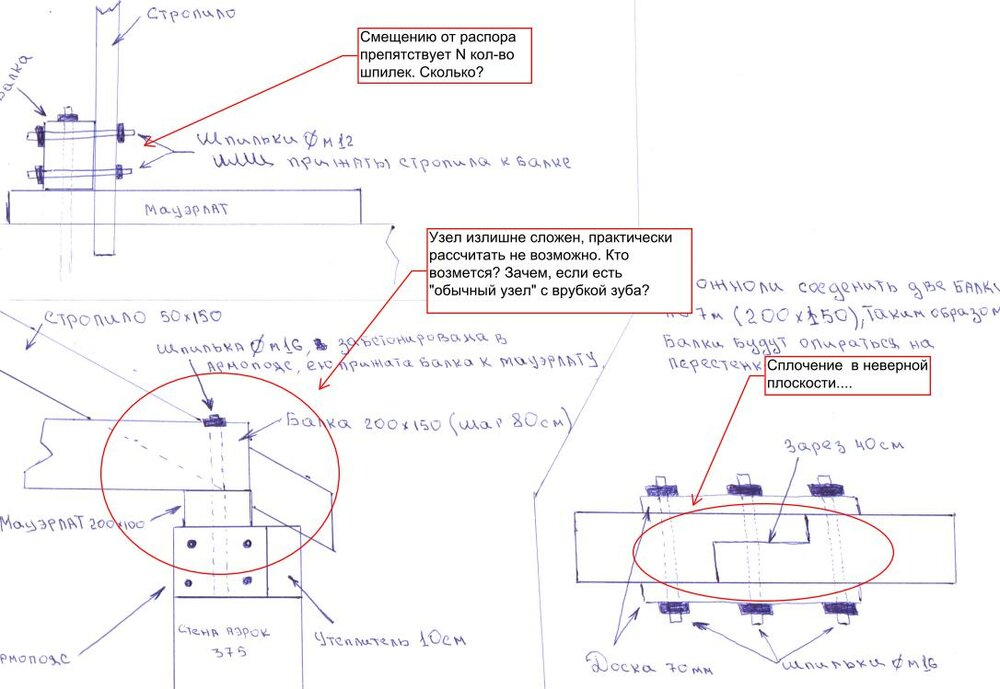 Стропило
Балка
Смещению от распора
препятствует N кол-во
шпилек. Сколько?
Шпильки ⌀ м12
прижаты стропила к балке
Мауэрлат
Узел излишне сложен, практически
рассчитать не возможно. Кто
возмется? Зачем, если есть
"обычный узел" с врубкой зуба?
ожноли соеденить две балки
7м (200х150), таким образом
Балки будут опираться на
перестенк
Сплочение в неверной
плоскости....
Стропило 50х150
Шпилька ⌀ м16, забетонирована в
армопояс, ею прижата балка к мауэрлату,
Балка 200х150 (шаг 80см)
Мауэрлат 200х100
рмопояс
Стена аэрок
375
Утеплитель 10см
Зарез 40см
Доска 70мм
Шпильки ⌀ м16